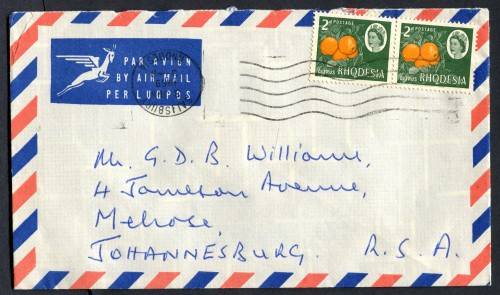 PAR AVION
BY AIR MAIL
PER LUGPOS
SALISBURY
2d POSTAGE
Citrus RHODESIA
2d POSTAGE
Citrus RHODESIA
Mr. G. D. B. Williams,
4 Jameson Avenue,
Melrose,
JOHANNESBURG. R. S. A.